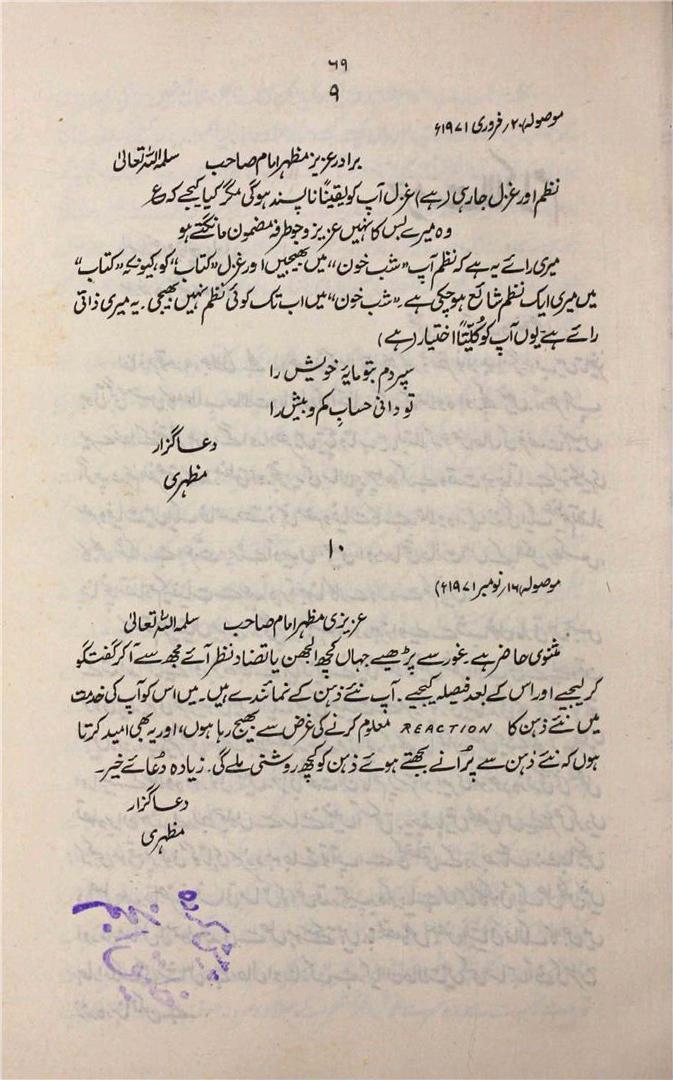 ۶۹
۹
موصولہ ۲۰/ فروری ۱۹۷۱ء
برادر عزیز مظہر امام صاحب سلمہ اللہ تعالیٰ
نظم اور غزل جاری (ہے) غزل آپ کو یقیناً ناپسند ہوگی مگر کیا کیجے کہ ع
وہ میرے بس کا نہیں عزیز و جو طرفہ مضمون مانگتے ہو
میری رائے یہ ہے کہ نظم آپ “شب خون” میں بھیجیں اور غزل “کتاب” کو، کیونکہ “کتاب”
میں میری ایک نظم شائع ہو چکی ہے۔ “شب خون” میں اب تک کوئی نظم نہیں بھیجی۔ یہ میری ذاتی
رائے ہے یوں آپ کو کُلیّتاً اختیار (ہے)
سپردم بتو مایۂ خویش را
تو دانی حسابِ کم و بیش را
دعا گزار
مظہری
۱۰
موصولہ ۱۶/ نومبر ۱۹۷۱ء)
عزیزی مظہر امام صاحب سلمہ اللہ تعالیٰ
مثنوی حاضر ہے۔ غور سے پڑھیے جہاں کچھ الجھن یا تضاد نظر آئے مجھ سے آکر گفتگو
کر لیجیے اور اس کے بعد فیصلہ کیجیے۔ آپ نئے ذہن کے نمائندے ہیں۔ میں اس کو آپ کی خدمت
میں نئے ذہن کا REACTION معلوم کرنے کی غرض سے بھیج رہا ہوں، اور یہ بھی امید کرتا
ہوں کہ نئے ذہن سے پُرانے بجھتے ہوئے ذہن کو کچھ روشنی ملے گی۔ زیادہ دُعائے خیر۔
دعا گزار
مظہری
پیش کردہ